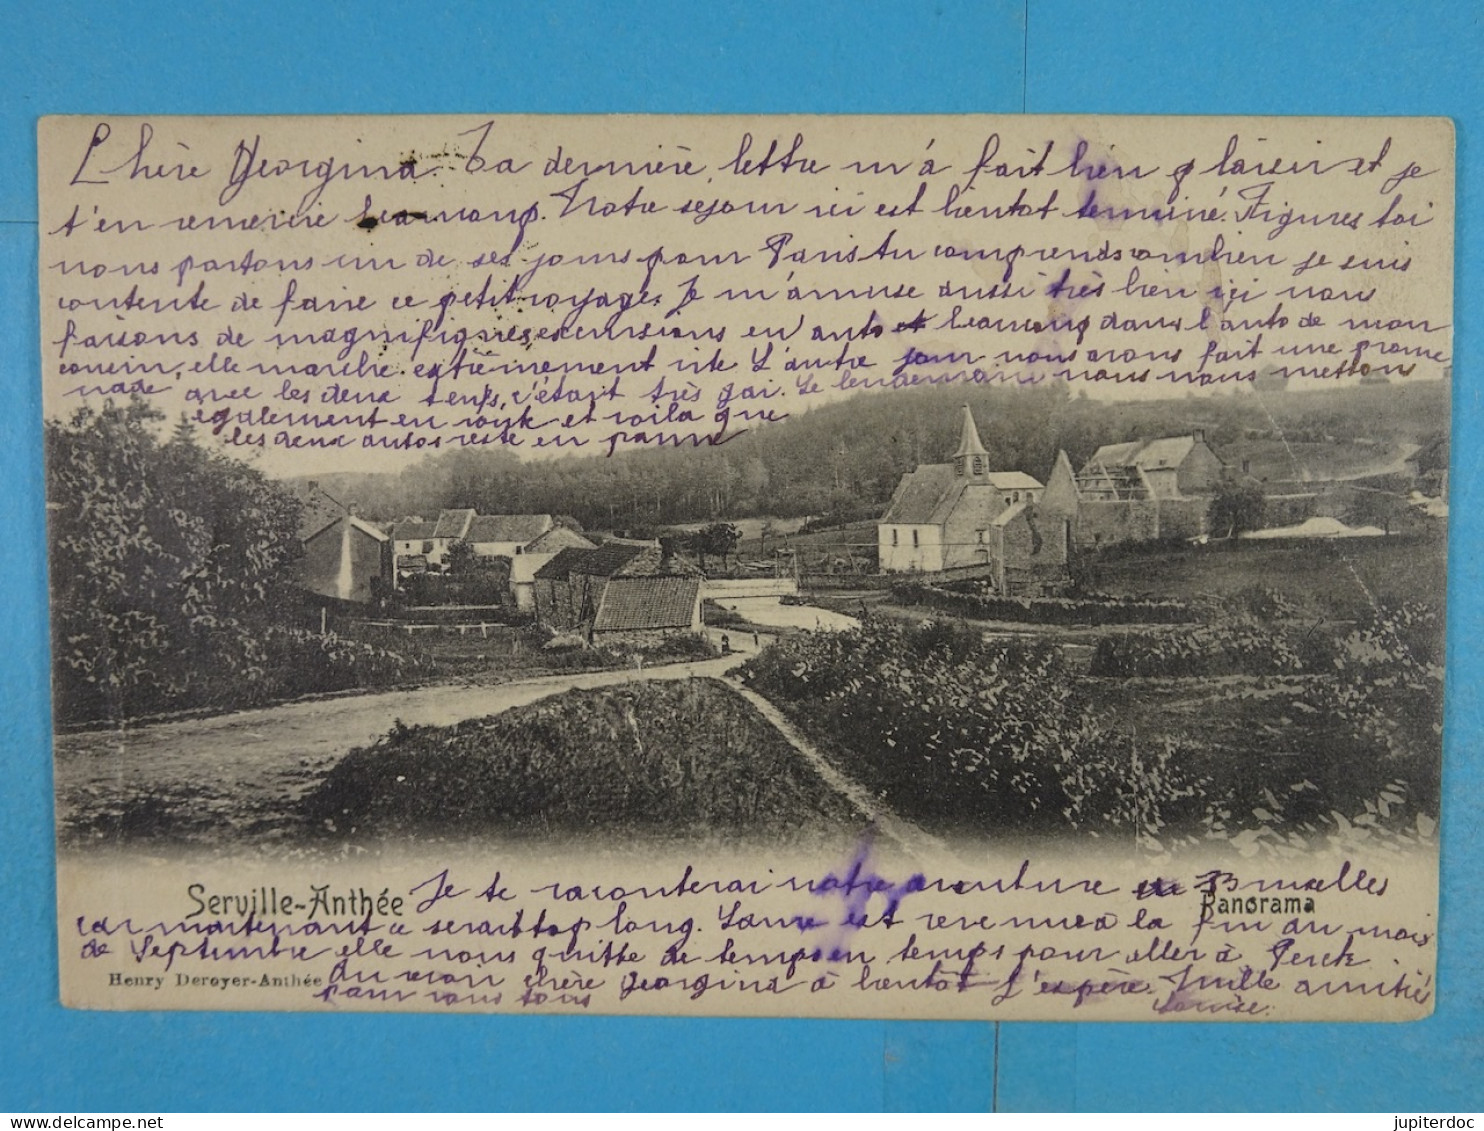 Chère Georgina. Ta dernière lettre m'à fait bien plaisir et je
t'en remercie beaucoup. Notre sejour ici est bientot terminé. Figures toi
nous partons un de ses jours pour Paris tu comprends combien je suis
contente de faire ce petit voyage. Je m'amuse aussi très bien ici nous
faisons de magnifiques excursions en auto et beaucoup dans l'auto de mon
cousin, elle marche extrèmement vite L'autre jour nous avons fait une prome
nade avec les deux temps, c'était très gai. Le lendemain nous nous mettons
egalement en route et voila que
les deux autos reste en panne
Serville-Anthée Je te raconterai notre aventure Bruxelles
Panorama
car maintenant ce serait trop long. est revenue a la fin du mois
de Septembre elle nous quitte de temps en temps pour aller à Perck.
Henry Deroyer-Anthée
Au revoir chère Georgina à bientôt j'espère. Mille amitié
pour vous tous
Louise.
jupiterdoc